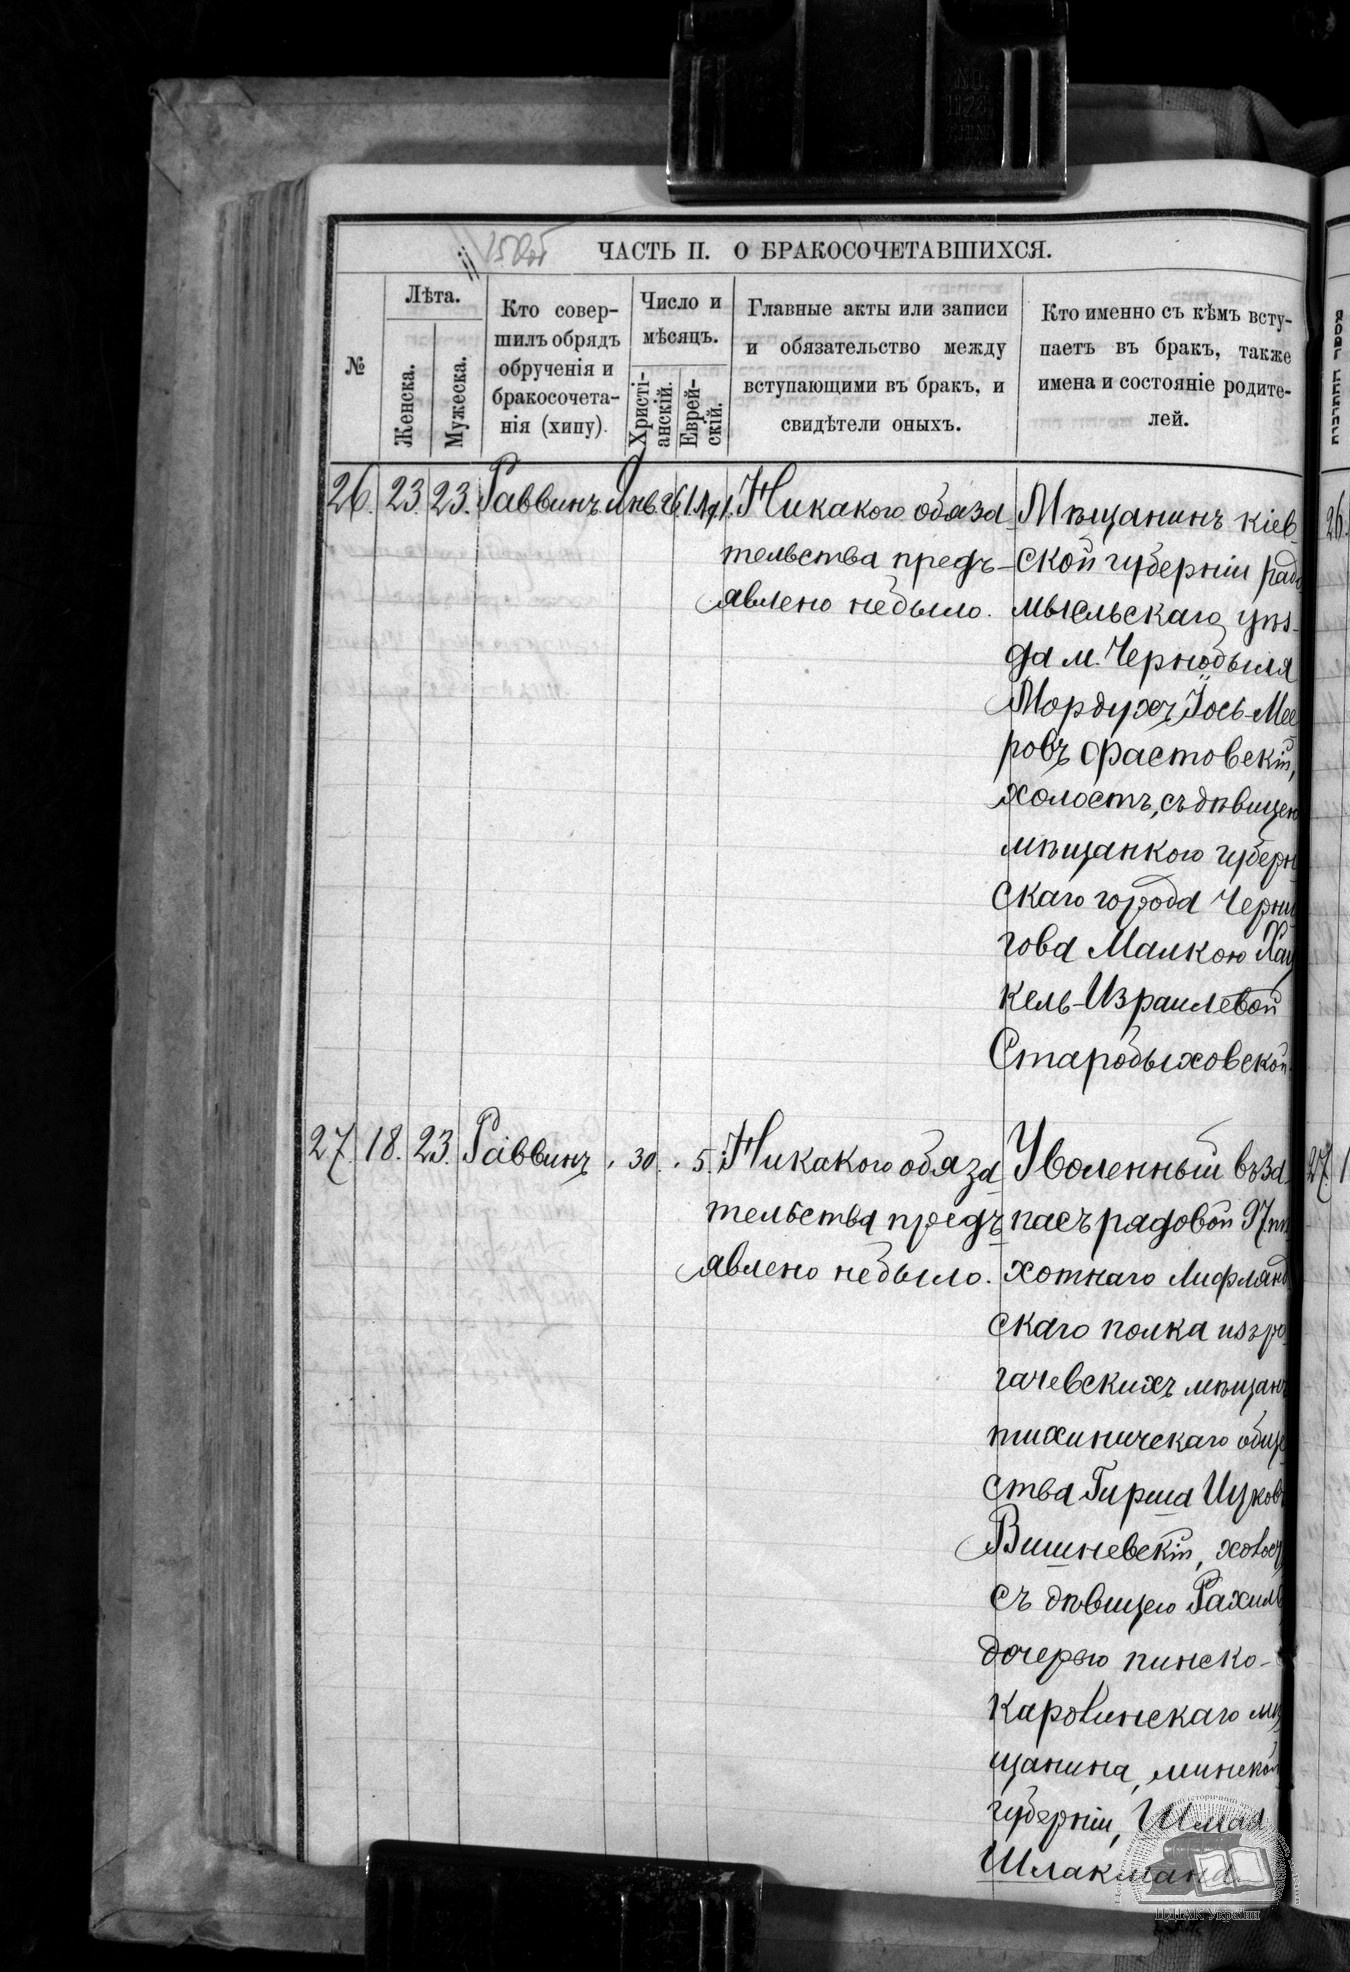 ЧАСТЬ II. О БРАКОСОЧЕТАВШИХСЯ.
№
Лѣта.
Женска.
Мужеска.
Кто совер-
шилъ обрядъ
обрученія и
бракосочета-
нія (хипу).
Число и
мѣсяцъ.
Христі-
анскій.
Еврей-
скій.
Главные акты или записи
и обязательство между
вступающими въ бракъ, и
свидѣтели оныхъ.
Кто именно съ кѣмъ всту-
паетъ въ бракъ, также
имена и состояніе родите-
лей.
26. 23. 23. Раввинъ Янв. 26
Никакого обяза
тельства предъ-
явлено небыло.
Мѣщанинъ кіев-
ской губерніи радо
мысльскаго уѣз-
да м. Чернобыля
Мордухъ Іось-Мее
ровъ Фастовскій,
холостъ, съ дѣвицею
мѣщанкою губерн
скаго города Черни
гова Малкою Хай
кель-Израилевой
Старобыховской
27. 18. 23. Раввинъ „ 30. „ 5.
Никакого обяза
тельства предъ
явлено небыло.
Уволенный въ за-
пасъ рядовой 97 пѣ
хотнаго Лифлянд
скаго полка изъ ро
гачевскихъ мѣщанъ
тихиничскаго обще
ства Гирша Ицковъ
Вишневскій, холостъ
съ дѣвицею Рахиль
дочерью пинско-
каролинскаго мѣ
щанина, минской
губерніи, Шмая
Шлакмана.
26.
27.
ЦДІАК України